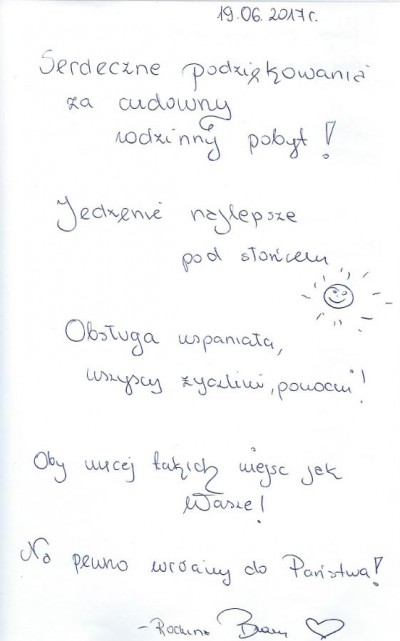 19.06.2017r.
Serdeczne podziękowania
za cudowny
rodzinny pobyt!
Jedzenie najlepsze
pod słońcem
Obsługa wspaniała,
wszyscy życzliwi, pomocni!
Oby więcej takich miejsc jak
Wasze!
Na pewno wrócimy do Państwa!
- Rodzina